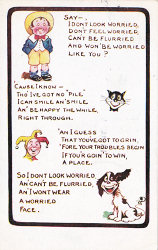 SAY—
I DONT LOOK WORRIED,
DONT FEEL WORRIED,
CAN'T BE FLURRIED
AND WON'T BE WORRIED
LIKE YOU?
'CAUSE I KNOW—
THO' I'VE GOT NO 'PILE'
I CAN SMILE AN' SMILE
AN' BE HAPPY THE WHILE,
RIGHT THROUGH.
'AN I GUESS
THAT YOU'VE GOT TO GRIN,
'FORE YOUR TROUBLES BEGIN
IF YOU'R GOIN' TO WIN,
A PLACE.
SO I DONT LOOK WORRIED,
AN' CAN'T BE FLURRIED,
AN' I WONT WEAR
A WORRIED
FACE.